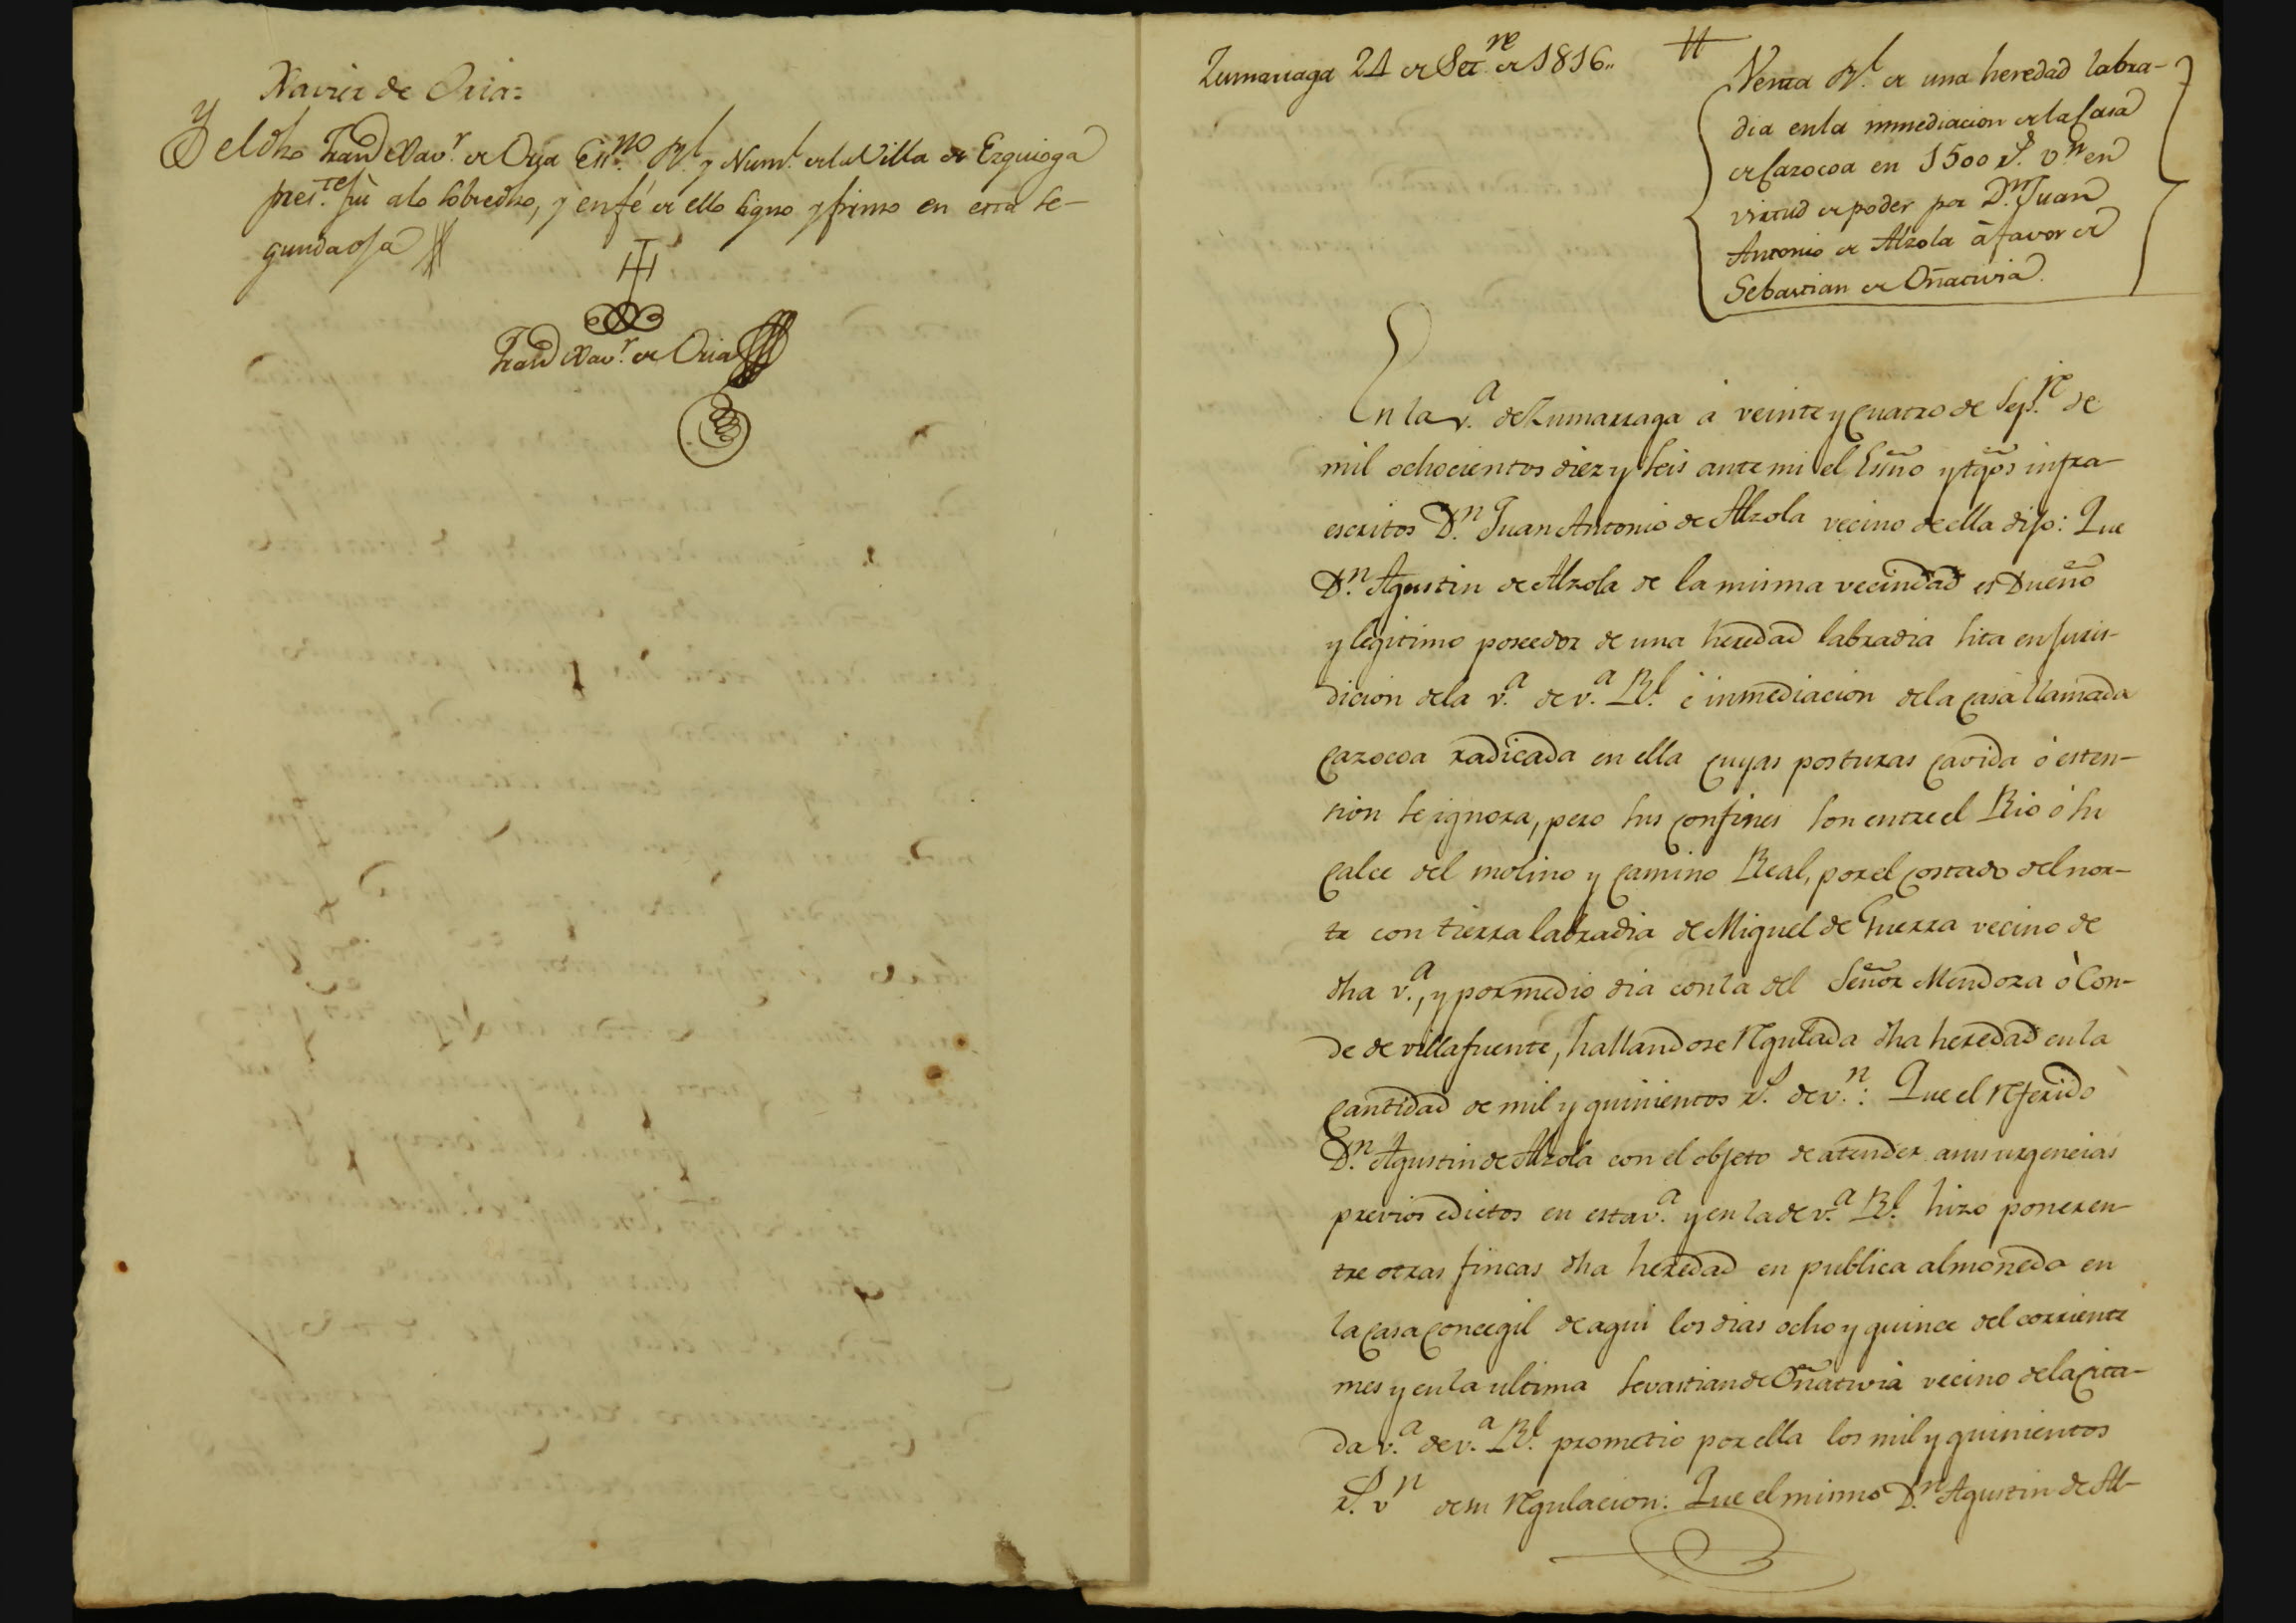 Xavier de Oria=
Y el dho Fran.co Xav.r de Oria Ess.no R.l y Num.l de la Villa de Ezquioga
pres.te fui a lo sobredho, y en fé de ello signo y firmo en esta se-
gunda oja
Fran.co Xav.r de Oria
Zumarraga 24 de Set.re de 1816..
Venta R.l de una heredad labra-
dia en la inmediacion de la Casa
de Cazocoa en 1500 r.s v.n en
virtud de poder por D.n Juan
Antonio de Alzola à favor de
Sebastian de Oñativia.
En la v.a de Zumarraga à veinte y quatro de Sep.re de
mil ochocientos diez y seis ante mi el Essño y tgõs infra-
escritos D.n Juan Antonio de Alzola vecino de ella dijo: Que
D.n Agustin de Alzola de la misma vecindad es Dueño
y legitimo poseedor de una heredad labradia sita en juris-
dicion de la v.a de v.a R.l è inmediacion de la casa llamada
Cazocoa radicada en ella cuyas posturas cavida ò esten-
sion se ignora, pero sus confines son entre el Rio ò su
calce del molino y camino Real, por el costado del nor-
te con tierra labradia de Miguel de Guerra vecino de
dha v.a, y por medio dia con la del Señor Mendoza ò Con-
de de villafuente, hallandose regulada dha heredad en la
cantidad de mil y quinientos r.s de v.n: Que el referido
D.n Agustin de Alzola con el objeto de atender a sus urgencias
previos edictos en esta v.a y en la de v.a R.l hizo poner en-
tre otras fincas dha heredad en publica almoneda en
la casa concegil de aqui los dias ocho y quince del corriente
mes y en la ultima Sevastian de Oñativia vecino de la cita-
da v.a de v.a R.l prometio por ella los mil y quinientos
r.s v.n de su regulacion: Que el mismo D.n Agustin de Al-